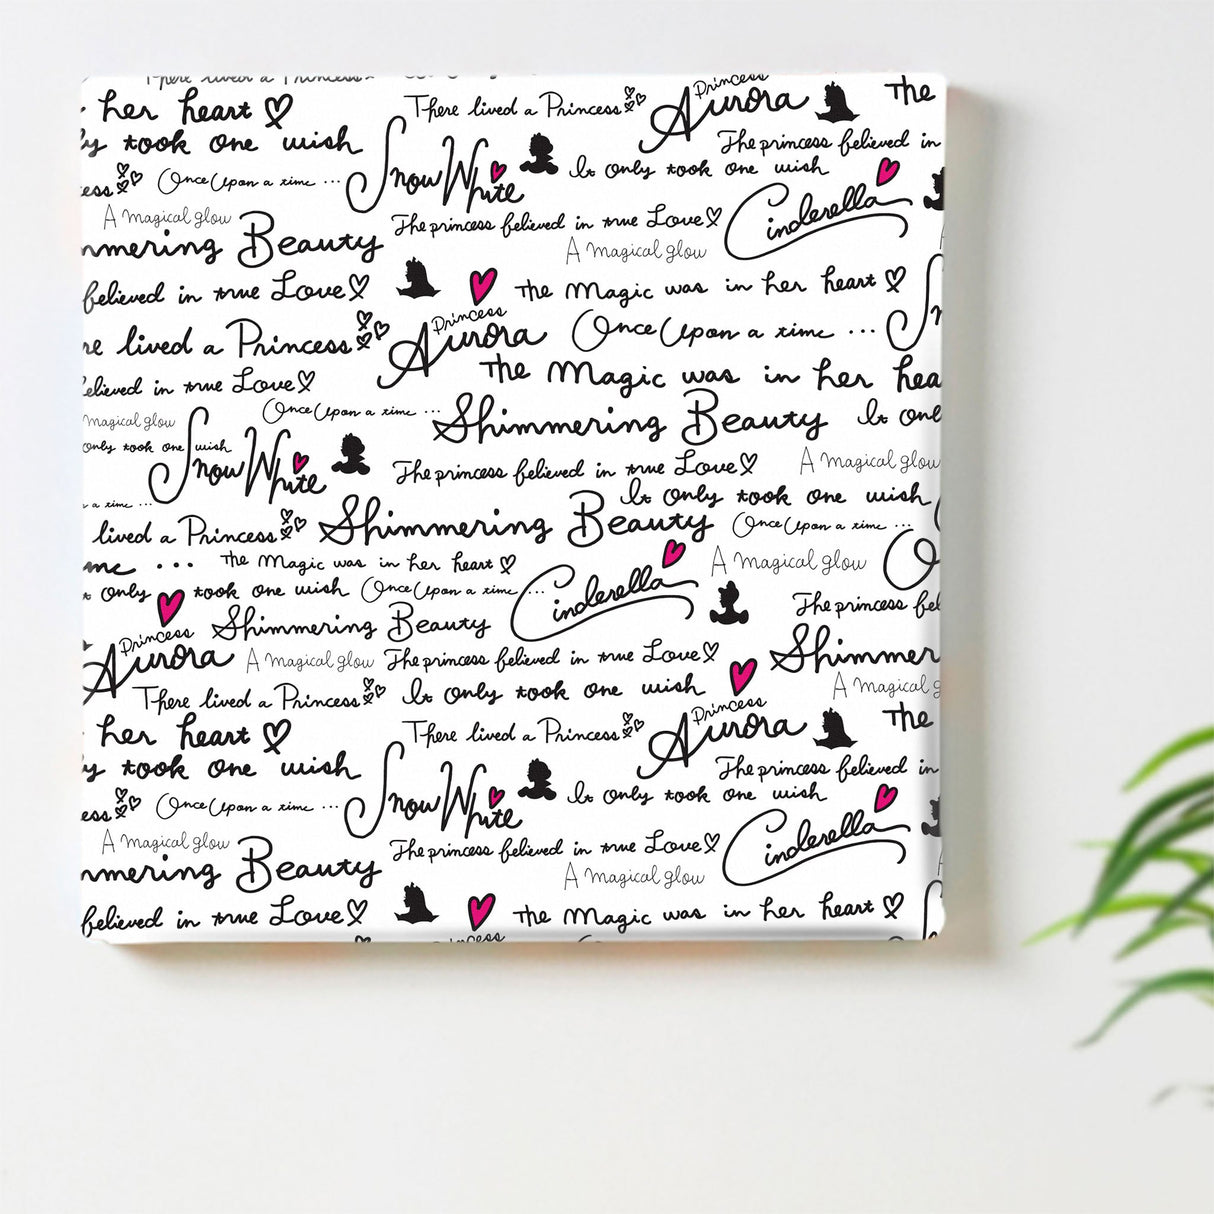 There lived a Princess
her heart
There lived a Princess
Princess Aurora
The
took one wish
Snow White
The princess believed in
It only took one wish
Once Upon a time ...
A magical glow
Beauty
The princess believed in true Love
Cinderella
A magical glow
believed in true Love
The Magic was in her heart
lived a Princess
Princess Aurora
Once Upon a time ...
believed in true Love
The Magic was in her hea
magical glow
Once Upon a time ...
Shimmering Beauty
It onl
only took one wish
Snow White
The princess believed in true Love
A magical glow
a time ...
It only took one wish
lived a Princess
Shimmering Beauty
Once Upon a time ...
me ...
The Magic was in her heart
Cinderella
A magical glow
only took one wish
Once Upon a time ...
The princess bel
Princess Aurora
Shimmering Beauty
A magical glow
The princess believed in true Love
Shimmer
There lived a Princess
It only took one wish
A magical g
her heart
There lived a Princess
Princess Aurora
The
took one wish
Snow White
The princess believed in
It only took one wish
Once Upon a time ...
A magical glow
mmering Beauty
The princess believed in true Love
Cinderella
A magical glow
believed in true Love
The Magic was in her heart
Princess